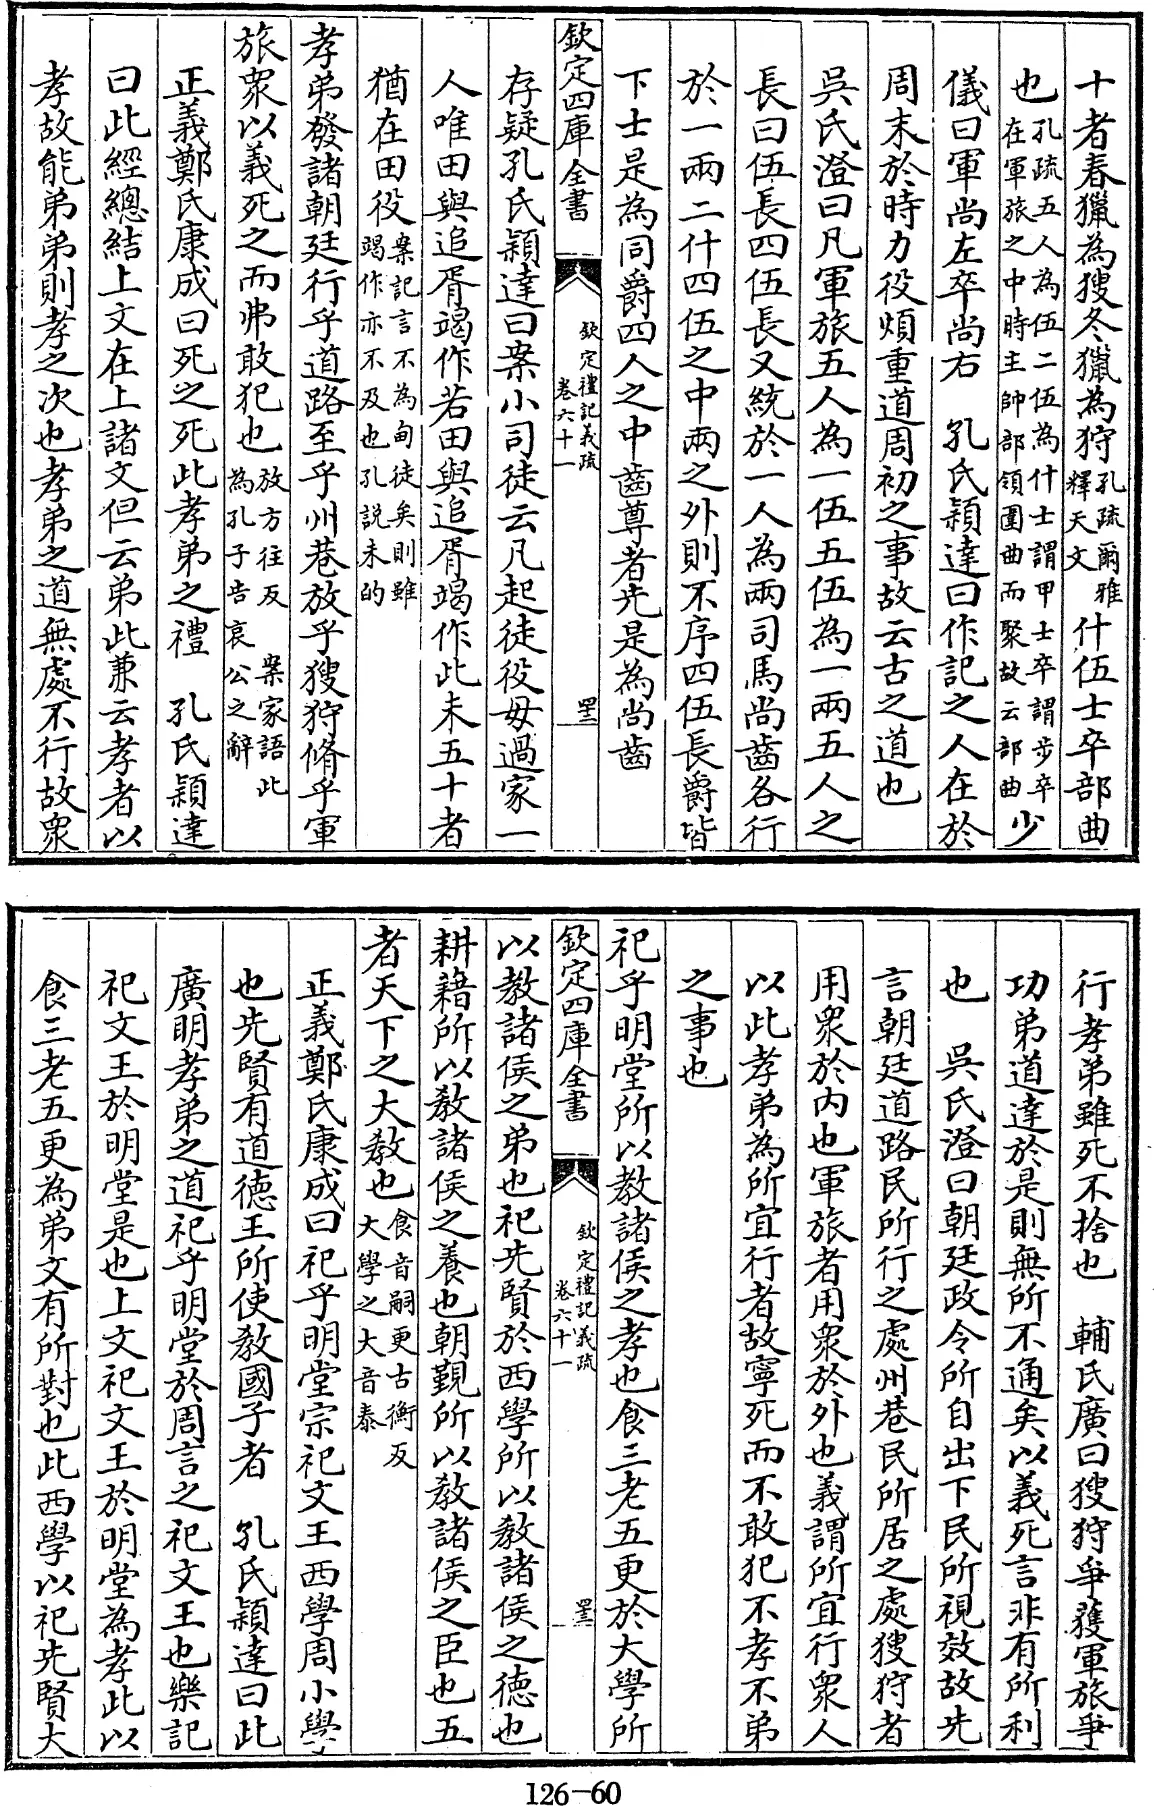 十者春獵為獀冬獵為狩孔疏爾雅釋天文什伍士卒部曲
也孔疏五人為伍二伍為什士謂甲士卒謂步卒在軍旅之中時主帥部領團曲而聚故云部曲少
儀曰軍尚左卒尚右　孔氏穎達曰作記之人在於
周末於時力役煩重道周初之事故云古之道也
吳氏澄曰凡軍旅五人為一伍五伍為一兩五人之
長曰伍長四伍長又統於一人為兩司馬尚齒各行
於一兩二什四伍之中兩之外則不序四伍長爵皆
下士是為同爵四人之中齒尊者先是為尚齒
欽定四庫全書　欽定禮記義疏卷六十一
存疑孔氏穎達曰案小司徒云凡起徒役毋過家一
人唯田與追胥竭作若田與追胥竭作此未五十者
猶在田役案記言不為甸徒矣則雖竭作亦不及也孔説未的
孝弟發諸朝廷行乎道路至乎州巷放乎獀狩脩乎軍
旅衆以義死之而弗敢犯也放方往反　案家語此為孔子告哀公之辭
正義鄭氏康成曰死之死此孝弟之禮　孔氏穎達
曰此經總結上文在上諸文但云弟此兼云孝者以
孝故能弟弟則孝之次也孝弟之道無處不行故衆
行孝弟雖死不捨也　輔氏廣曰獀狩爭獲軍旅爭
功弟道達於是則無所不通矣以義死言非有所利
也　吳氏澄曰朝廷政令所自出下民所視效故先
言朝廷道路民所行之處州巷民所居之處獀狩者
用衆於内也軍旅者用衆於外也義謂所宜行衆人
以此孝弟為所宜行者故寧死而不敢犯不孝不弟
之事也
祀乎明堂所以教諸侯之孝也食三老五更於大學所
欽定四庫全書　欽定禮記義疏卷六十一
以教諸侯之弟也祀先賢於西學所以教諸侯之德也
耕籍所以教諸侯之養也朝覲所以教諸侯之臣也五
者天下之大教也食音嗣更古衡反大學之大音泰
正義鄭氏康成曰祀乎明堂宗祀文王西學周小學
也先賢有道德王所使教國子者　孔氏穎達曰此
廣明孝弟之道祀乎明堂於周言之祀文王也樂記
祀文王於明堂是也上文祀文王於明堂為孝此以
食三老五更為弟文有所對也此西學以祀先賢大
126-60